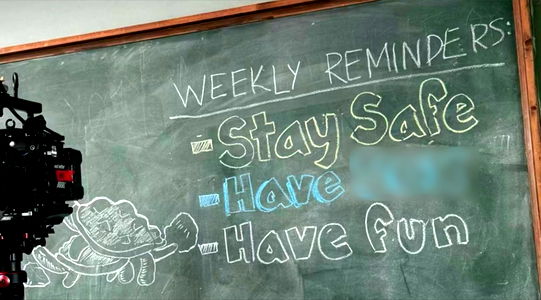 WEEKLY REMINDERS:
- Stay Safe
- Have
- Have fun